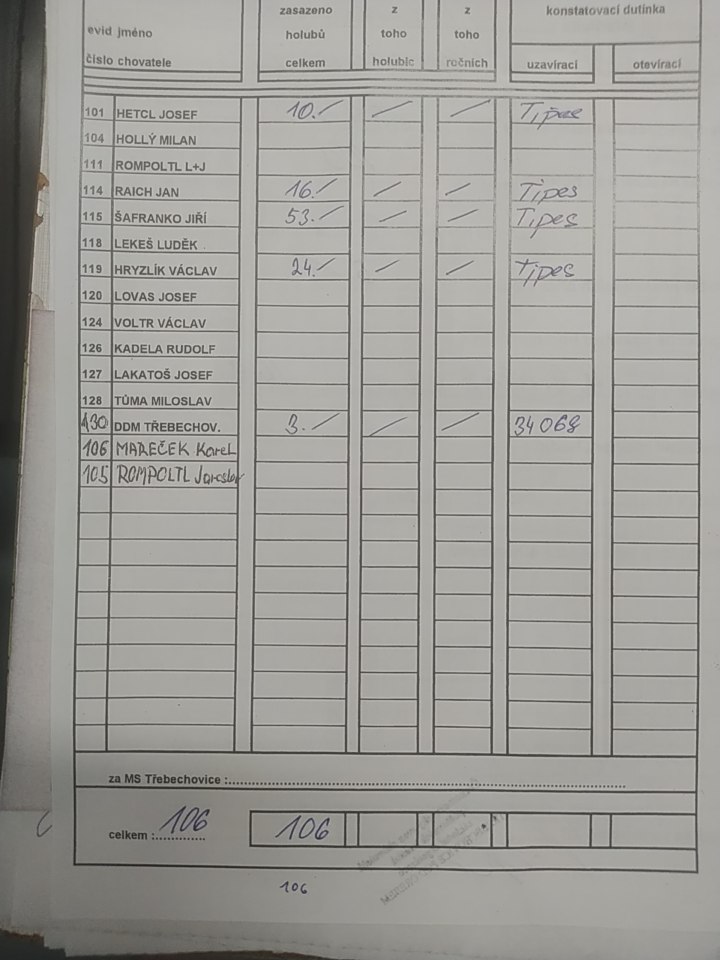 zasazeno z z konstatovací dutinka
evid jméno holubů toho toho
číslo chovatele celkem holubic ročních uzavírací otevírací
101 HETCL JOSEF 10.- / / Tipes
104 HOLLÝ MILAN
111 ROMPOLTL L+J
114 RAICH JAN 16.- / / Tipes
115 ŠAFRANKO JIŘÍ 53.- / / Tipes
118 LEKEŠ LUDĚK .
119 HRYZLÍK VÁCLAV 24.- / / Tipes
120 LOVAS JOSEF
124 VOLTR VÁCLAV
126 KADELA RUDOLF
127 LAKATOŠ JOSEF
128 TŮMA MILOSLAV
130 DDM TŘEBECHOV. 3.- / / 34068
106 MAREČEK Karel
105 ROMPOLTL Jaroslav
za MS Třebechovice :
celkem : 106 106
106